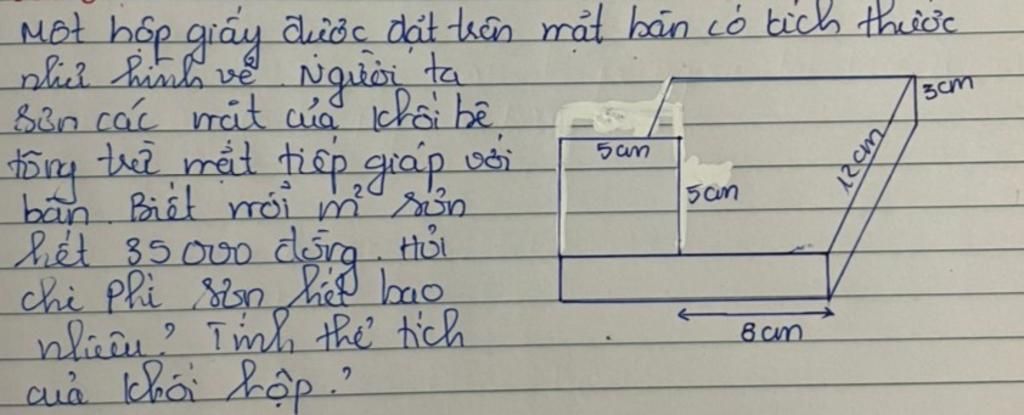 Một hộp giấy được đặt trên mặt bàn có tích thước
như hình vẽ. Người ta
3cm
sơn các mặt của khối bê
5cm
12cm
tông trừ mặt tiếp giáp với
5cm
bàn. Biết mỗi m² sơn
hết 35000 đồng. Hỏi
chi phí sơn hết bao
8cm
nhiêu? Tính thể tích
của khối hộp?